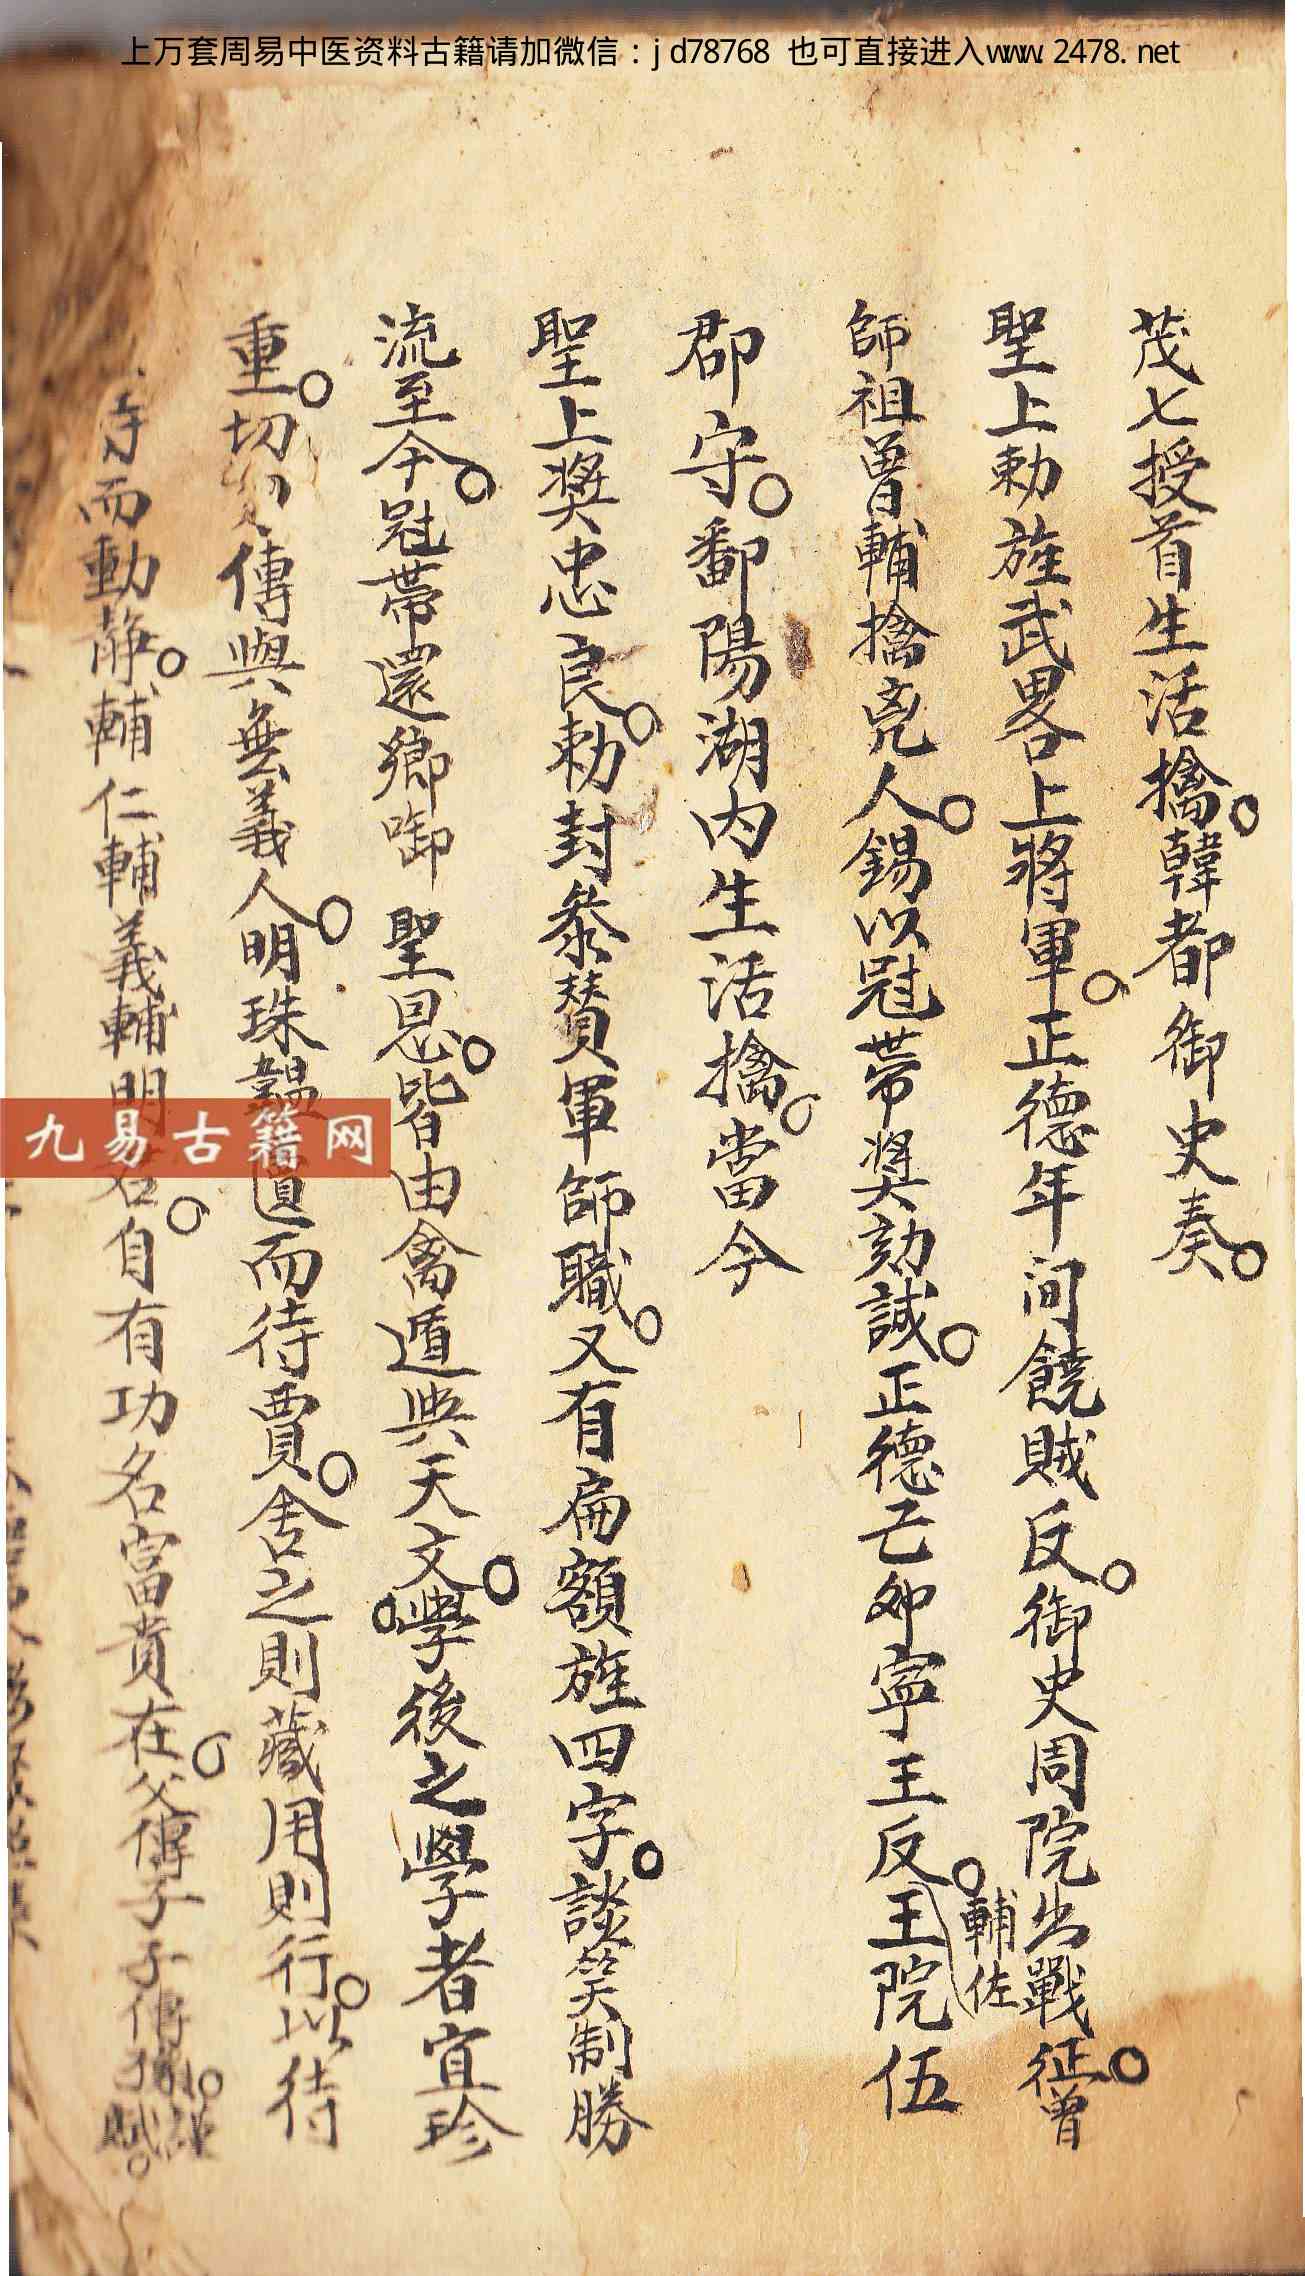 上万套周易中医资料古籍请加微信：jd78768 也可直接进入www.2478.net
茂七授首生活擒。韓都御史奏。
聖上勅旌武畧上將軍。正德年间饒賊反。御史周院出戰征。曾
師祖曾輔擒兇人。錫以冠帶奬効誠。正德己卯寧王反。王院伍
輔佐
郡守。鄱陽湖内生活擒。當今
聖上奬忠良。勅封叅賛軍師職。又有扁額旌四字。談笑制勝
流至今。冠帶還鄉啣 聖恩。皆由禽遁與天文。學後之學者宜珍
重。切切傳與無義人。明珠韞匵而待賈。舍之則藏用則行。以待
時而動静。輔仁輔義輔明君。自有功名富貴在。父傳子子傳孫
九易古籍网